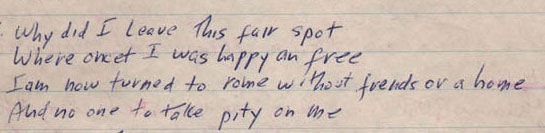 . Why did I leave this fair spot
Where oncet I was happy an free
I am now turned to rome without frends or a home
And no one to take pity on me